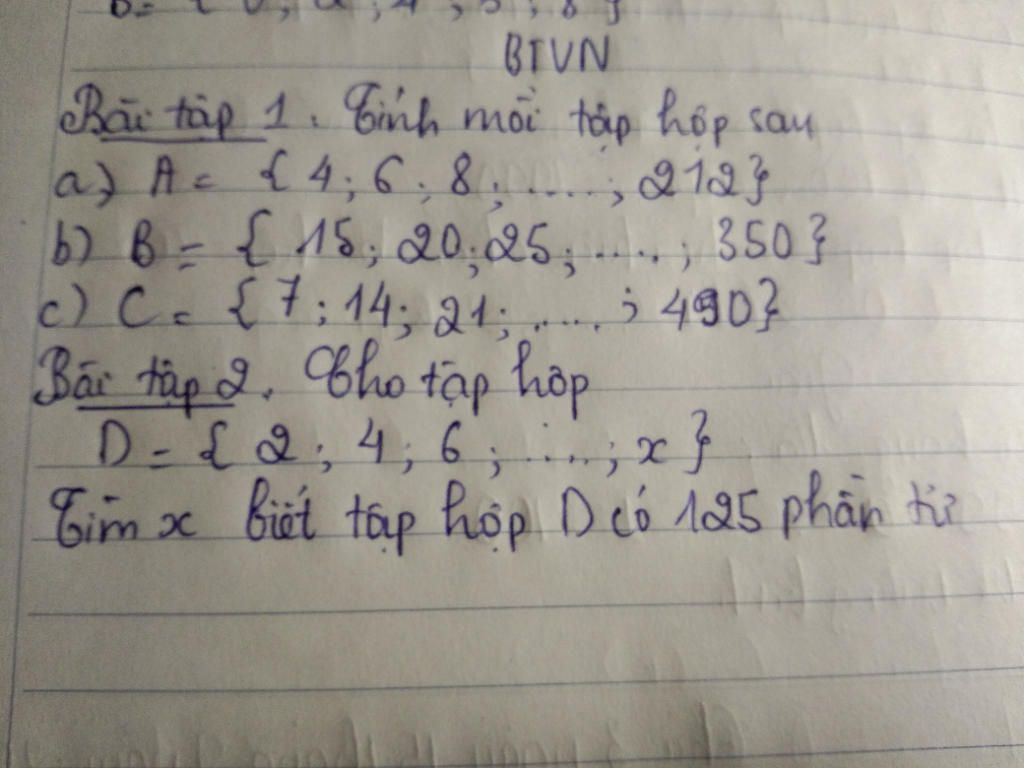 B = { 0 ; 2 ; 4 ; 6 ; 8 }
BTVN
Bài tập 1. Tính mỗi tập hợp sau
a) A = { 4 ; 6 ; 8 ; .... ; 212}
b) B = { 15 ; 20 ; 25 ; ..... ; 350}
c) C = { 7 ; 14 ; 21 ; ..... ; 490}
Bài tập 2. Cho tập hợp
D = { 2 ; 4 ; 6 ; .... ; x }
Tìm x biết tập hợp D có 125 phần tử